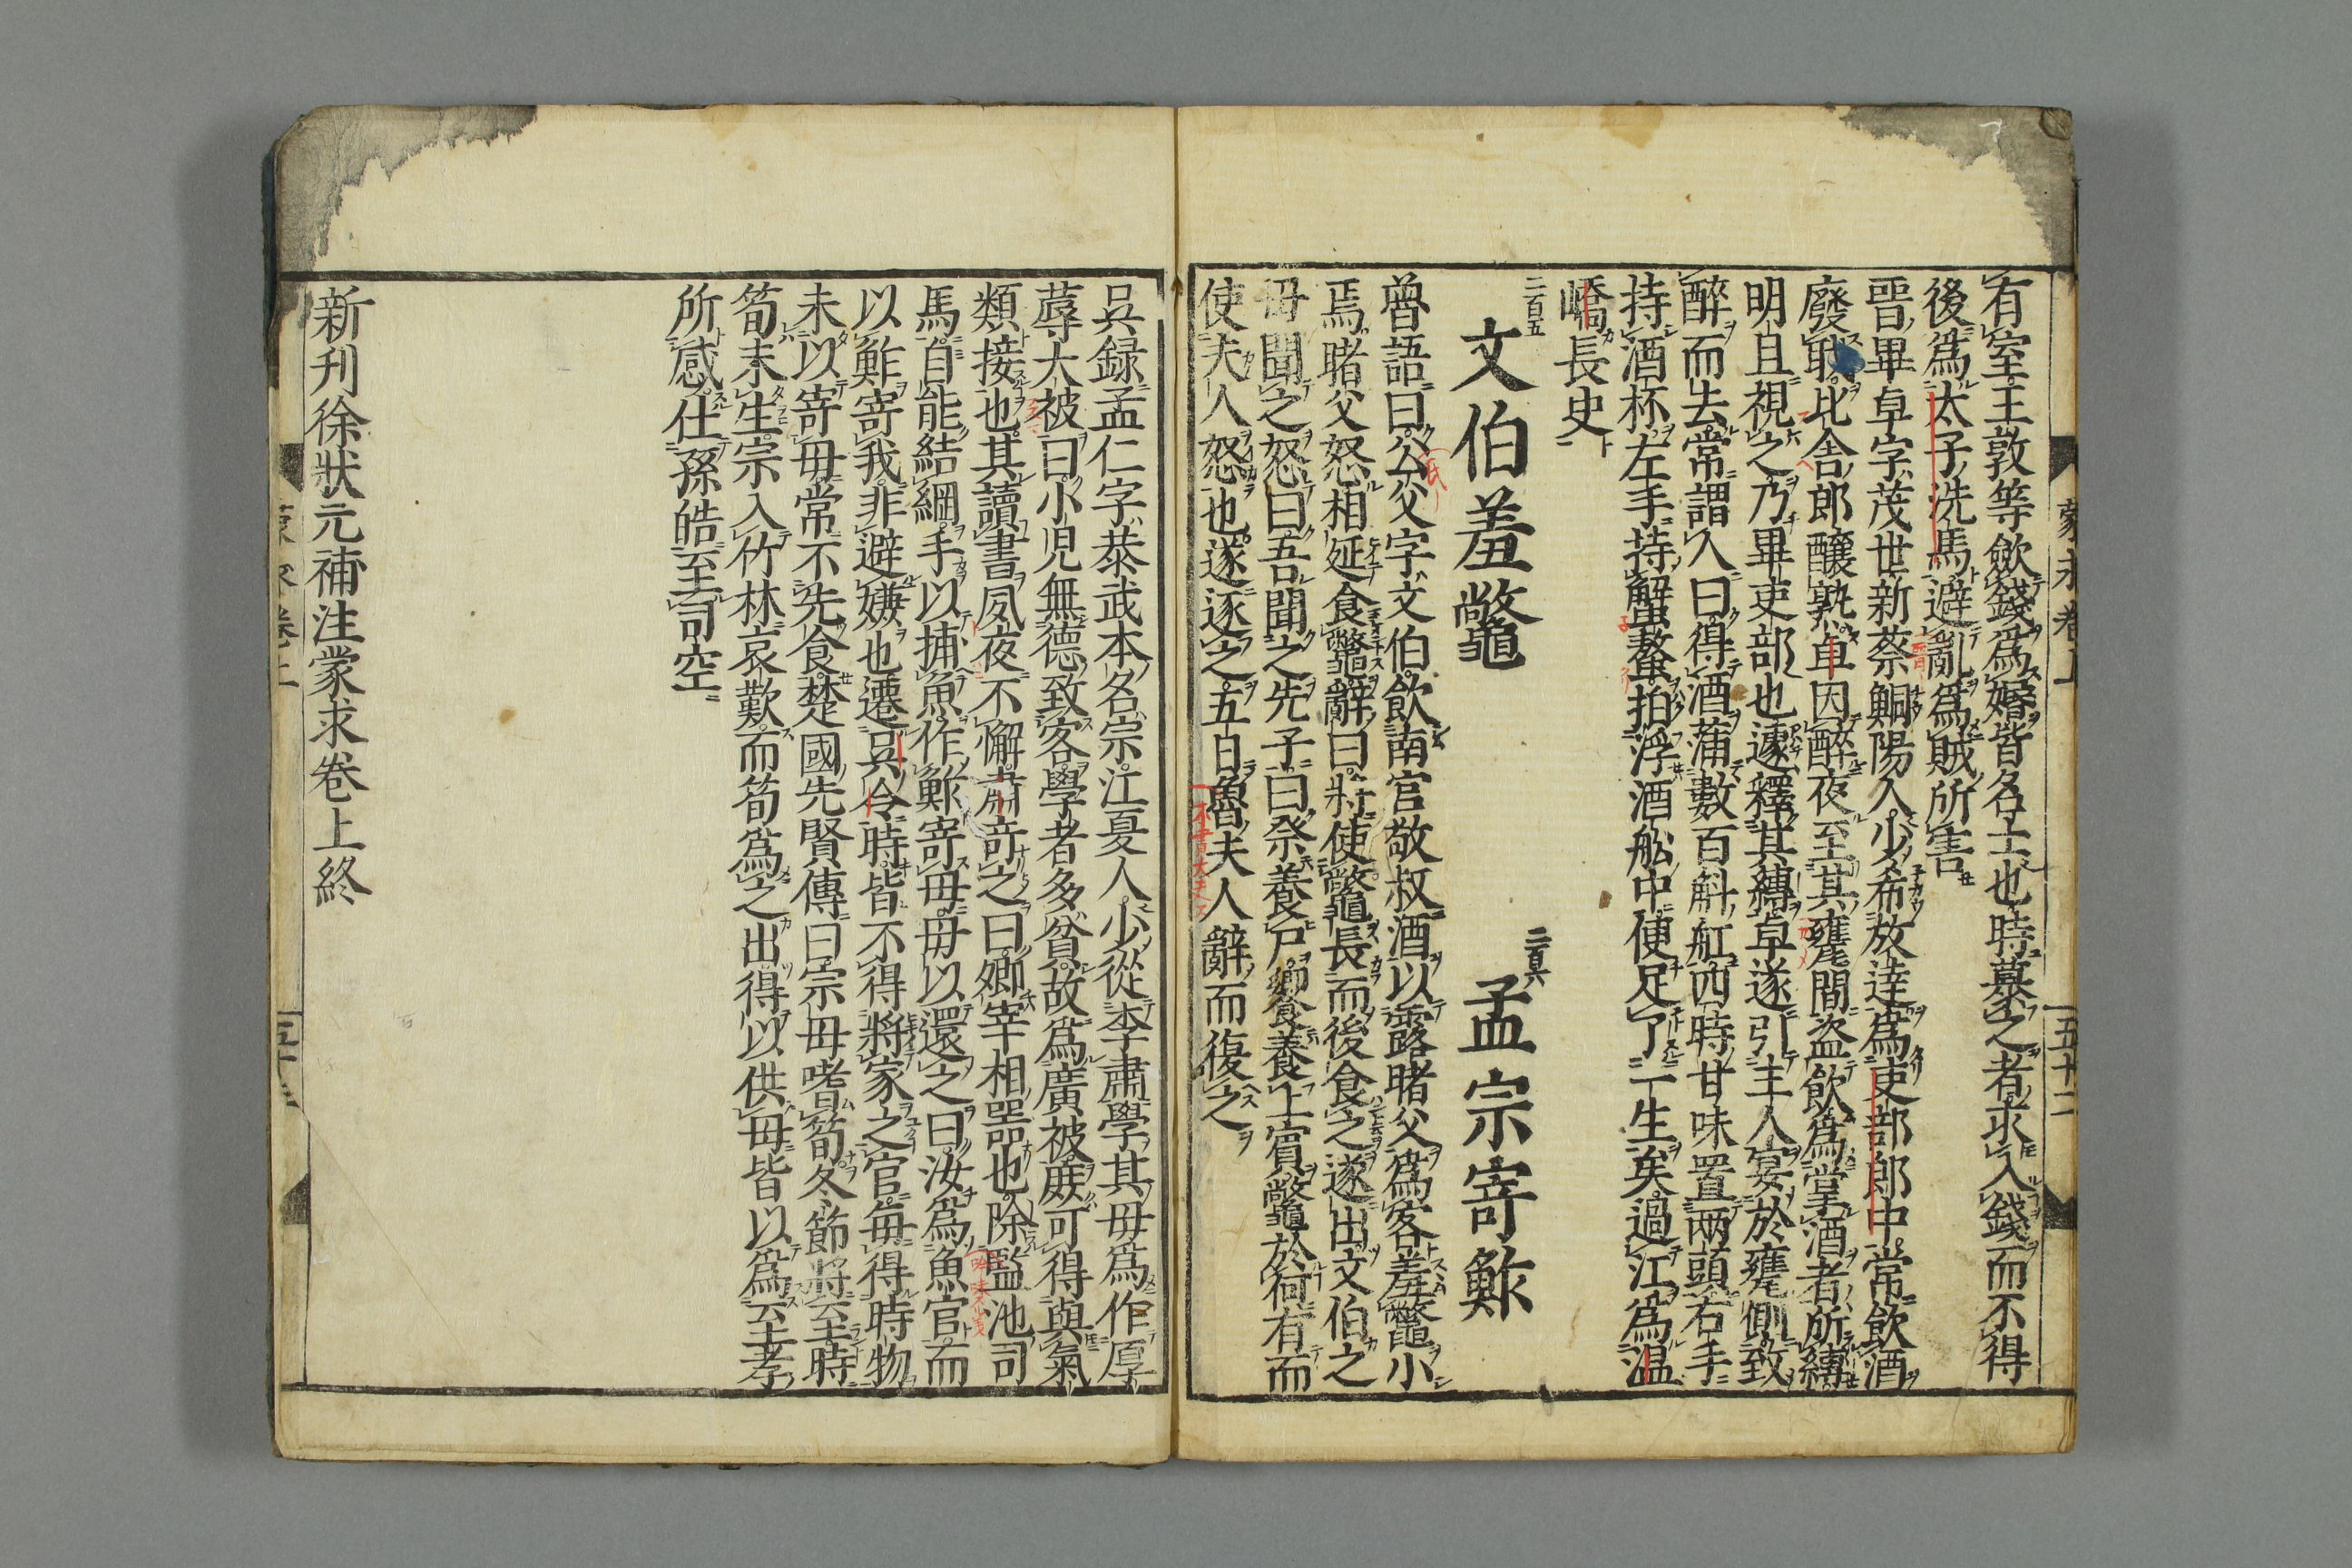 有室王敦等歛錢爲婚皆名士也時慕之者求入錢而不得
後爲太子洗馬避亂爲賊所害
晋畢卓字茂世新蔡鮦陽人少希放達爲吏部郎中常飲酒
廢職比舎郎釀熟卓因醉夜至其甕間盗飲爲掌酒者所縛
明旦視之乃畢吏部也遽釋其縛卓遂引主人宴於甕側致
醉而去常謂人曰得酒蒲數百斛舩四時甘味置兩頭右手
持酒杯左手持蟹螯拍浮酒舩中便足了一生矣過江爲温
嶠長史
二百五
文伯羞鼈
二百六
孟宗寄鮓
魯語曰公父字文伯飲南宮敬叔酒以露睹父爲客羞鼈小
焉睹父怒相延食鼈辭曰將使鼈長而後食之遂出文伯之
毋聞之怒曰吾聞之先子曰祭養尸饗養上賔鼈於何有而
使夫人怒也遂逐之五日魯夫人辭而復之
吳録孟仁字恭武本名宗江夏人少從李肅學其毋爲作厚
蓐大被曰小児無德致客學者多貧故爲廣被庶可得與氣
類接也其讀書夙夜不懈肅竒之曰卿宰相噐也除監池司
馬自能結網手以捕魚作鮓寄毋毋以還之曰汝爲魚官而
以鮓寄我非避嫌也遷吳令時皆不得將家之官毎得時物
未以寄毋常不先食楚國先賢傳曰宗毋嗜筍冬節將至時
筍未生宗入竹林哀歎而筍爲之出得以供毋皆以爲至孝
所感仕孫皓至司空
新刊徐狀元補注蒙求卷上終